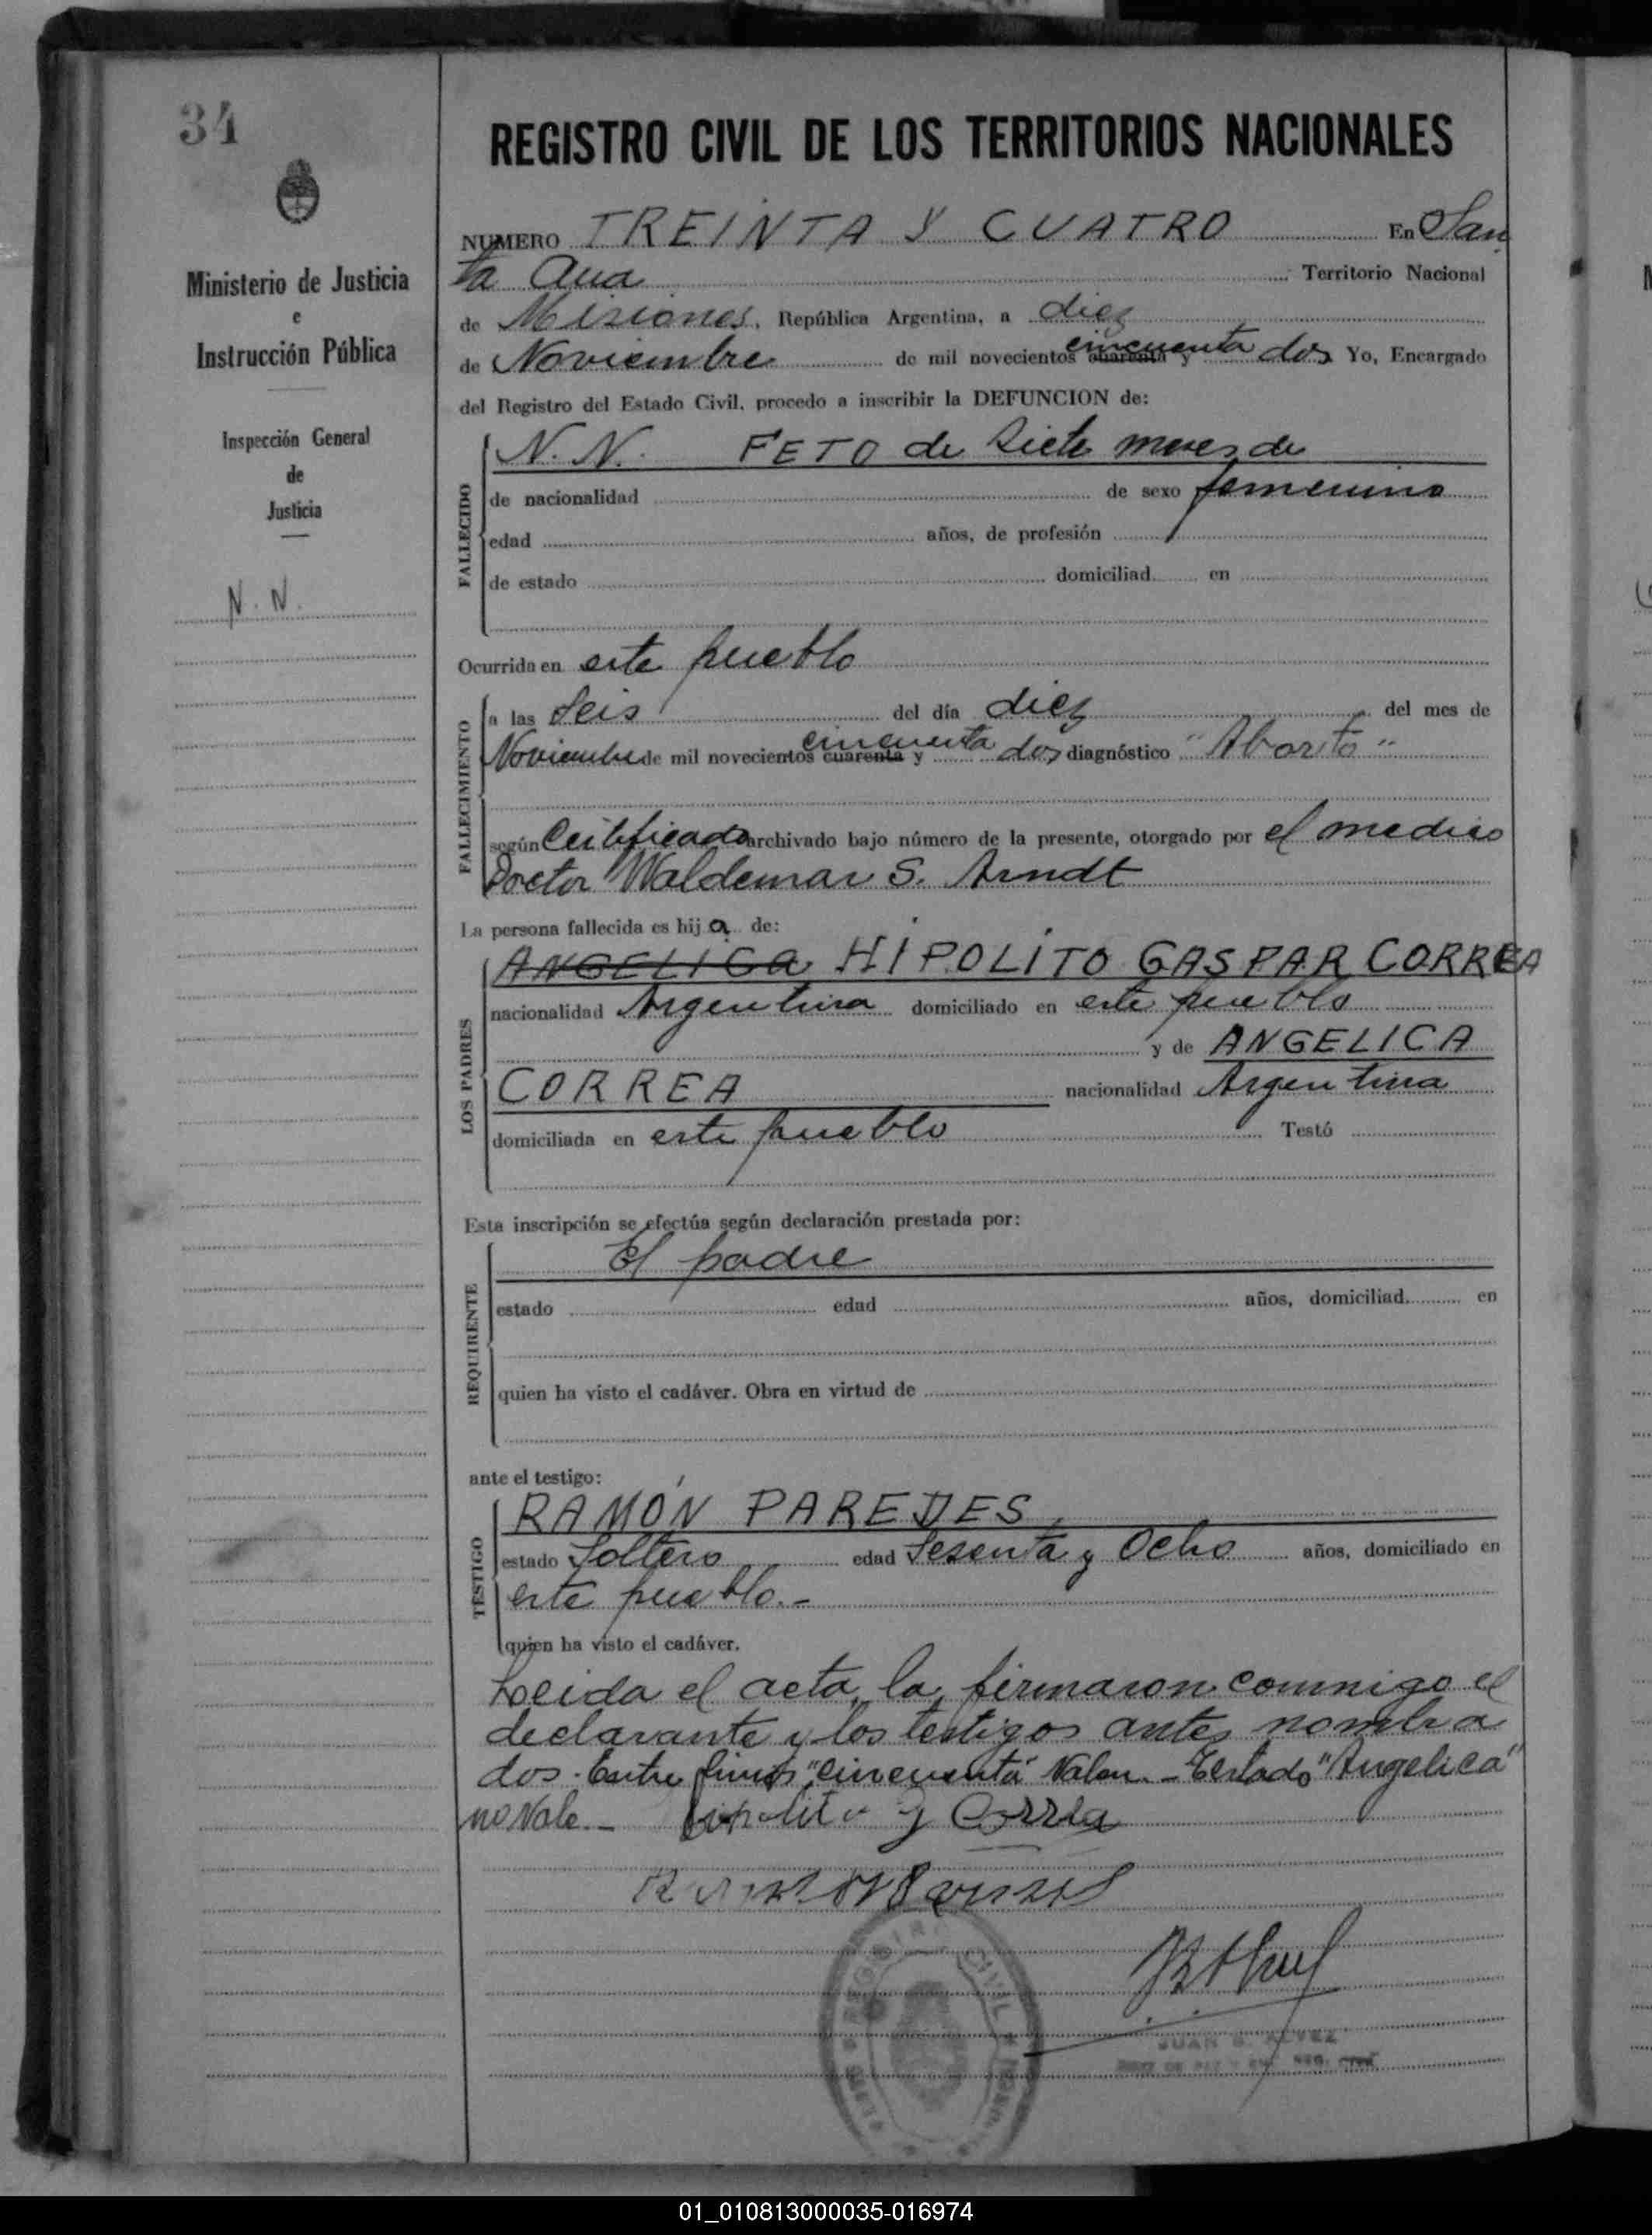 34
Ministerio de Justicia
e
Instrucción Pública
Inspección General
de
Justicia
N. N.
REGISTRO CIVIL DE LOS TERRITORIOS NACIONALES
NUMERO TREINTA Y CUATRO En San
ta Ana Territorio Nacional
de Misiones, República Argentina, a diez
de Noviembre de mil novecientos cuarenta y cincuenta dos Yo, Encargado
del Registro del Estado Civil, procedo a inscribir la DEFUNCION de:
FALLECIDO
N. N. FETO de siete meses de
de nacionalidad de sexo femenino
edad años, de profesión
de estado domiciliad en
Ocurrida en este pueblo
FALLECIMIENTO
a las Seis del día diez del mes de
Noviembre de mil novecientos cuarenta y cincuenta dos diagnóstico "Aborto"
según Certificado archivado bajo número de la presente, otorgado por el medico
Doctor Waldemar S. Arndt
La persona fallecida es hij a de:
LOS PADRES
ANGELICA HIPOLITO GASPAR CORREA
nacionalidad Argentina domiciliado en este pueblo
y de ANGELICA
CORREA nacionalidad Argentina
domiciliada en este pueblo Testó
Esta inscripción se efectúa según declaración prestada por:
REQUIRENTE
El padre
estado edad años, domiciliad en
quien ha visto el cadáver. Obra en virtud de
ante el testigo:
TESTIGO
RAMÓN PAREDES,
estado Soltero edad Sesenta y Ocho años, domiciliado en
este pueblo.-
quien ha visto el cadáver.
Leida el acta, la firmaron conmigo el
declarante y los testigos antes nombra
dos. Entre lineas "cincuenta" Valen. - Testado "Angelica"
no Vale.- Hipolito G Correa
REGISTRO CIVIL
JUAN B. ALVEZ
JUEZ DE PAZ Y ENC. REG. CIVIL
01_010813000035-016974